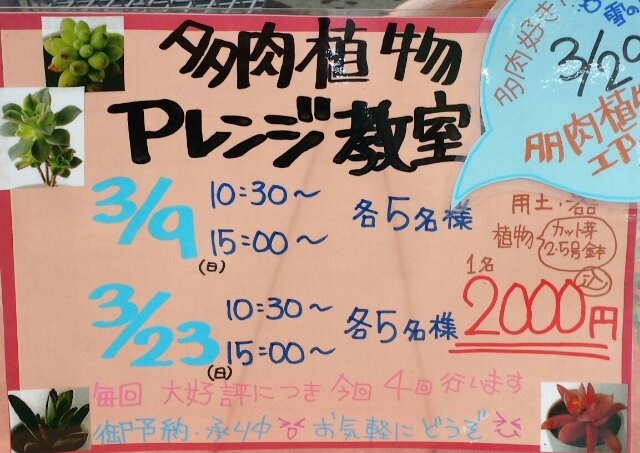 多肉植物
アレンジ教室
3/9(日) 10:30～ 各5名様
15:00～
3/23(日) 10:30～ 各5名様
15:00～
用土・器
植物(カット芽
2.5号鉢)
込
1名
2000円
毎回 大好評につき今回4回行います
御予約承り中 お気軽にどうぞ
多肉好き
3/29
多肉植